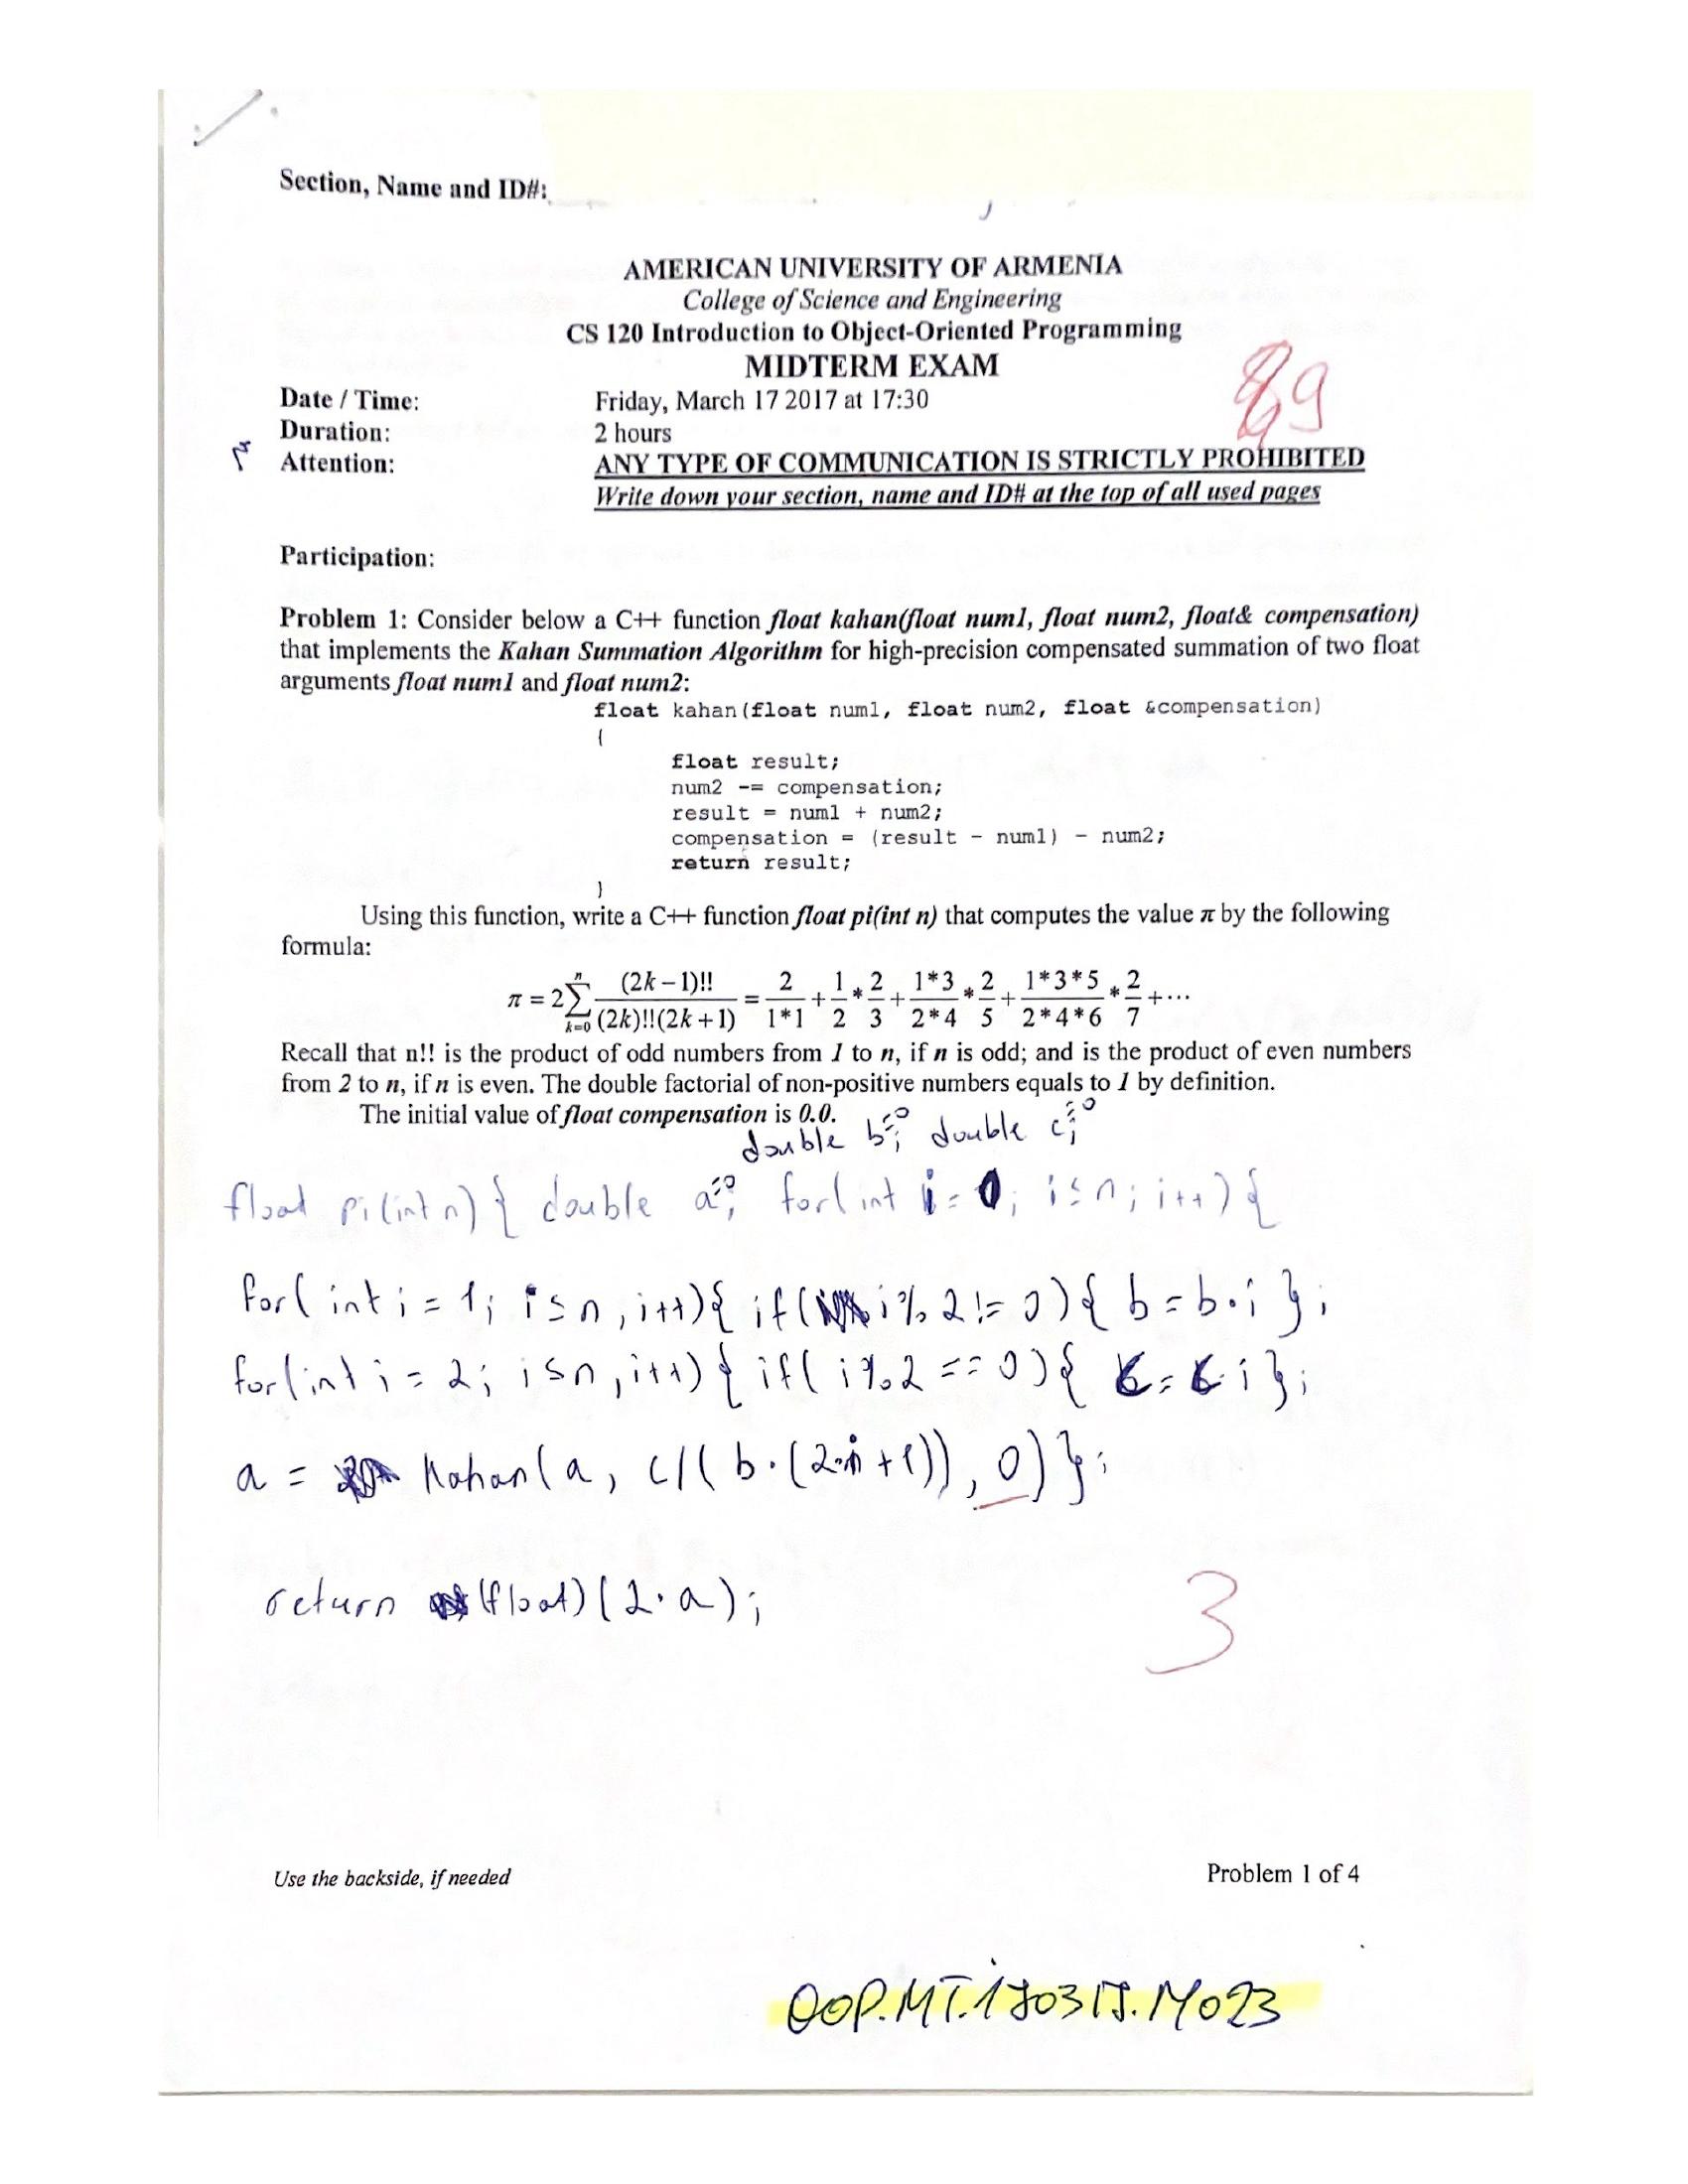 Section, Name and ID#:
AMERICAN UNIVERSITY OF ARMENIA
College of Science and Engineering
CS 120 Introduction to Object-Oriented Programming
MIDTERM EXAM
89
Date / Time: Friday, March 17 2017 at 17:30
Duration: 2 hours
Attention: ANY TYPE OF COMMUNICATION IS STRICTLY PROHIBITED
Write down your section, name and ID# at the top of all used pages
Participation:
Problem 1: Consider below a C++ function float kahan(float num1, float num2, float& compensation)
that implements the Kahan Summation Algorithm for high-precision compensated summation of two float
arguments float num1 and float num2:
float kahan(float num1, float num2, float &compensation)
{
float result;
num2 -= compensation;
result = num1 + num2;
compensation = (result - num1) - num2;
return result;
}
Using this function, write a C++ function float pi(int n) that computes the value π by the following
formula:
π = 2 ∑_{k=0}^{n} (2k-1)!! / ((2k)!!(2k+1)) = 2/(1*1) + 1/2 * 2/3 + (1*3)/(2*4) * 2/5 + (1*3*5)/(2*4*6) * 2/7 + ···
Recall that n!! is the product of odd numbers from 1 to n, if n is odd; and is the product of even numbers
from 2 to n, if n is even. The double factorial of non-positive numbers equals to 1 by definition.
The initial value of float compensation is 0.0.
double b=0; double c=0;
float pi(int n){ double a=0; for(int i = 0; i ≤ n; i++){
for( int i = 1; i ≤ n, i++){ if( i % 2 != 0){ b = b·i };
for(int i = 2; i ≤ n, i++){ if( i%2 == 0){ c = c·i };
a = Kahan(a, c/( b·(2·i+1)), 0)};
return (float)(2·a);
3
Use the backside, if needed
Problem 1 of 4
OOP.MT.170317.M023